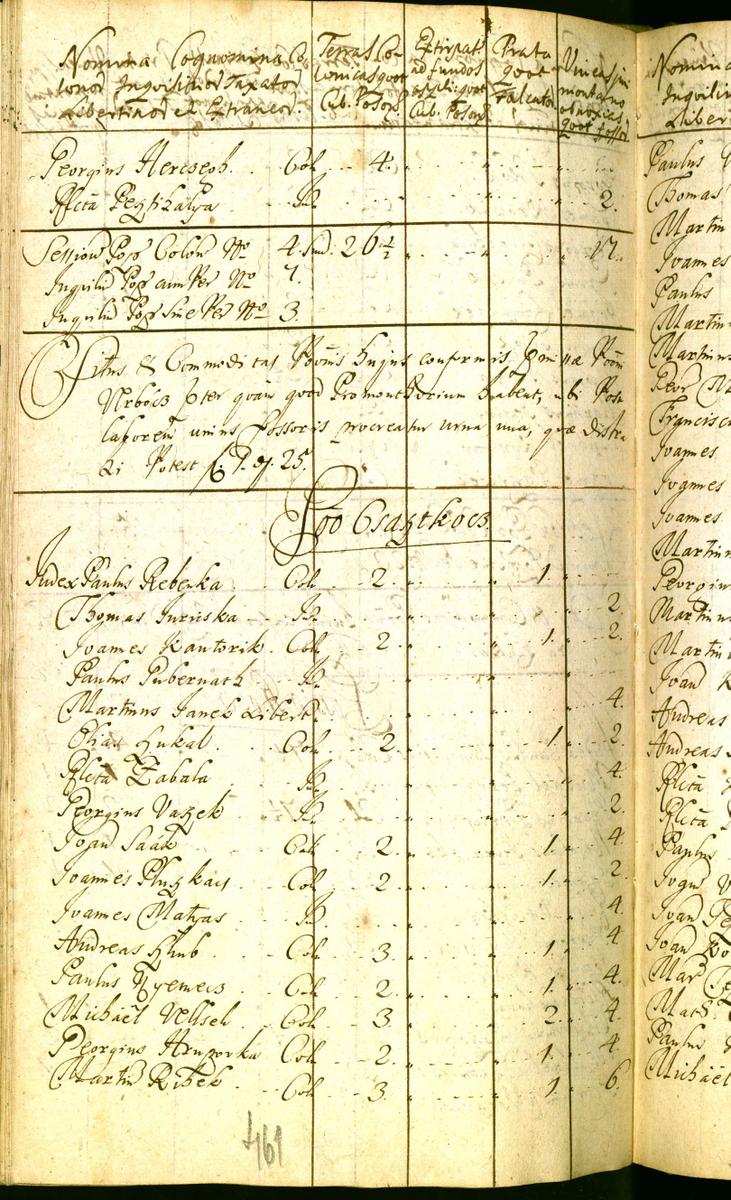 Nomina Cognomina Co
lonor Inquilinor Taxator
Libertinor et Extraneor.
Terras Co
lonicas quot
Cub. Poson
Extirpat
ad fundos
quot
Cub. Poson
Prata
quot
Falcator
Vineas
montano
obnoxias
quot fossor
Georgius Hercsegh. Col. 4.
Rlcta Pesztikalya Iq. 2.
Session Poss Colon No 4. Sud. 26 1/2 17.
Inquilin Poss cum Per No 7.
Inquilin Poss sine Per No 3.
Situs & Commoditas Poonis hujus conformis
Urbócz quam quod Promontorium habent, ubi Post
laborem unius Fossoris procreatur urna una, quæ distra
hi Potest 25.
Poo Csasztkocz
Judex Paulus Rebezka Col. 2. 1.
Thomas Juriska Iq. 2.
Joannes Kantorik. Col. 2. 1. 2.
Paulus Gubernath Iq.
Martinus Janek Libert. 4.
Elias Hukal Col. 2. 1. 2.
Rlcta Zabala Iq. 4.
Georgius Vaszek Iq. 2.
Joan Saak Col. 2. 1. 4.
Joannes Col. 2. 1. 2.
Joannes Matyas Iq. 4.
Andreas Hlub Col. 3. 1. 4
Paulus Nyemecz Col. 2. 1. 4.
Michaël Vellseh Col. 3. 2. 4.
Georgius Hruzovka Col. 2. 1. 4
Martin Ribek Col. 3. 1. 6.
461
Nomina
Inquilin
Liberti
Paulus
Thomas
Martin
Joannes
Paulus
Martin
Martinus
Geor
Francisc
Joannes
Joannes
Joannes
Martin
Georgiu
Martinu
Martin
Joan
Andreas
Andreas
Rlcta
Rlcta
Paulus
Joan
Joan
Joan
Mar
Math
Paulus
Michaël